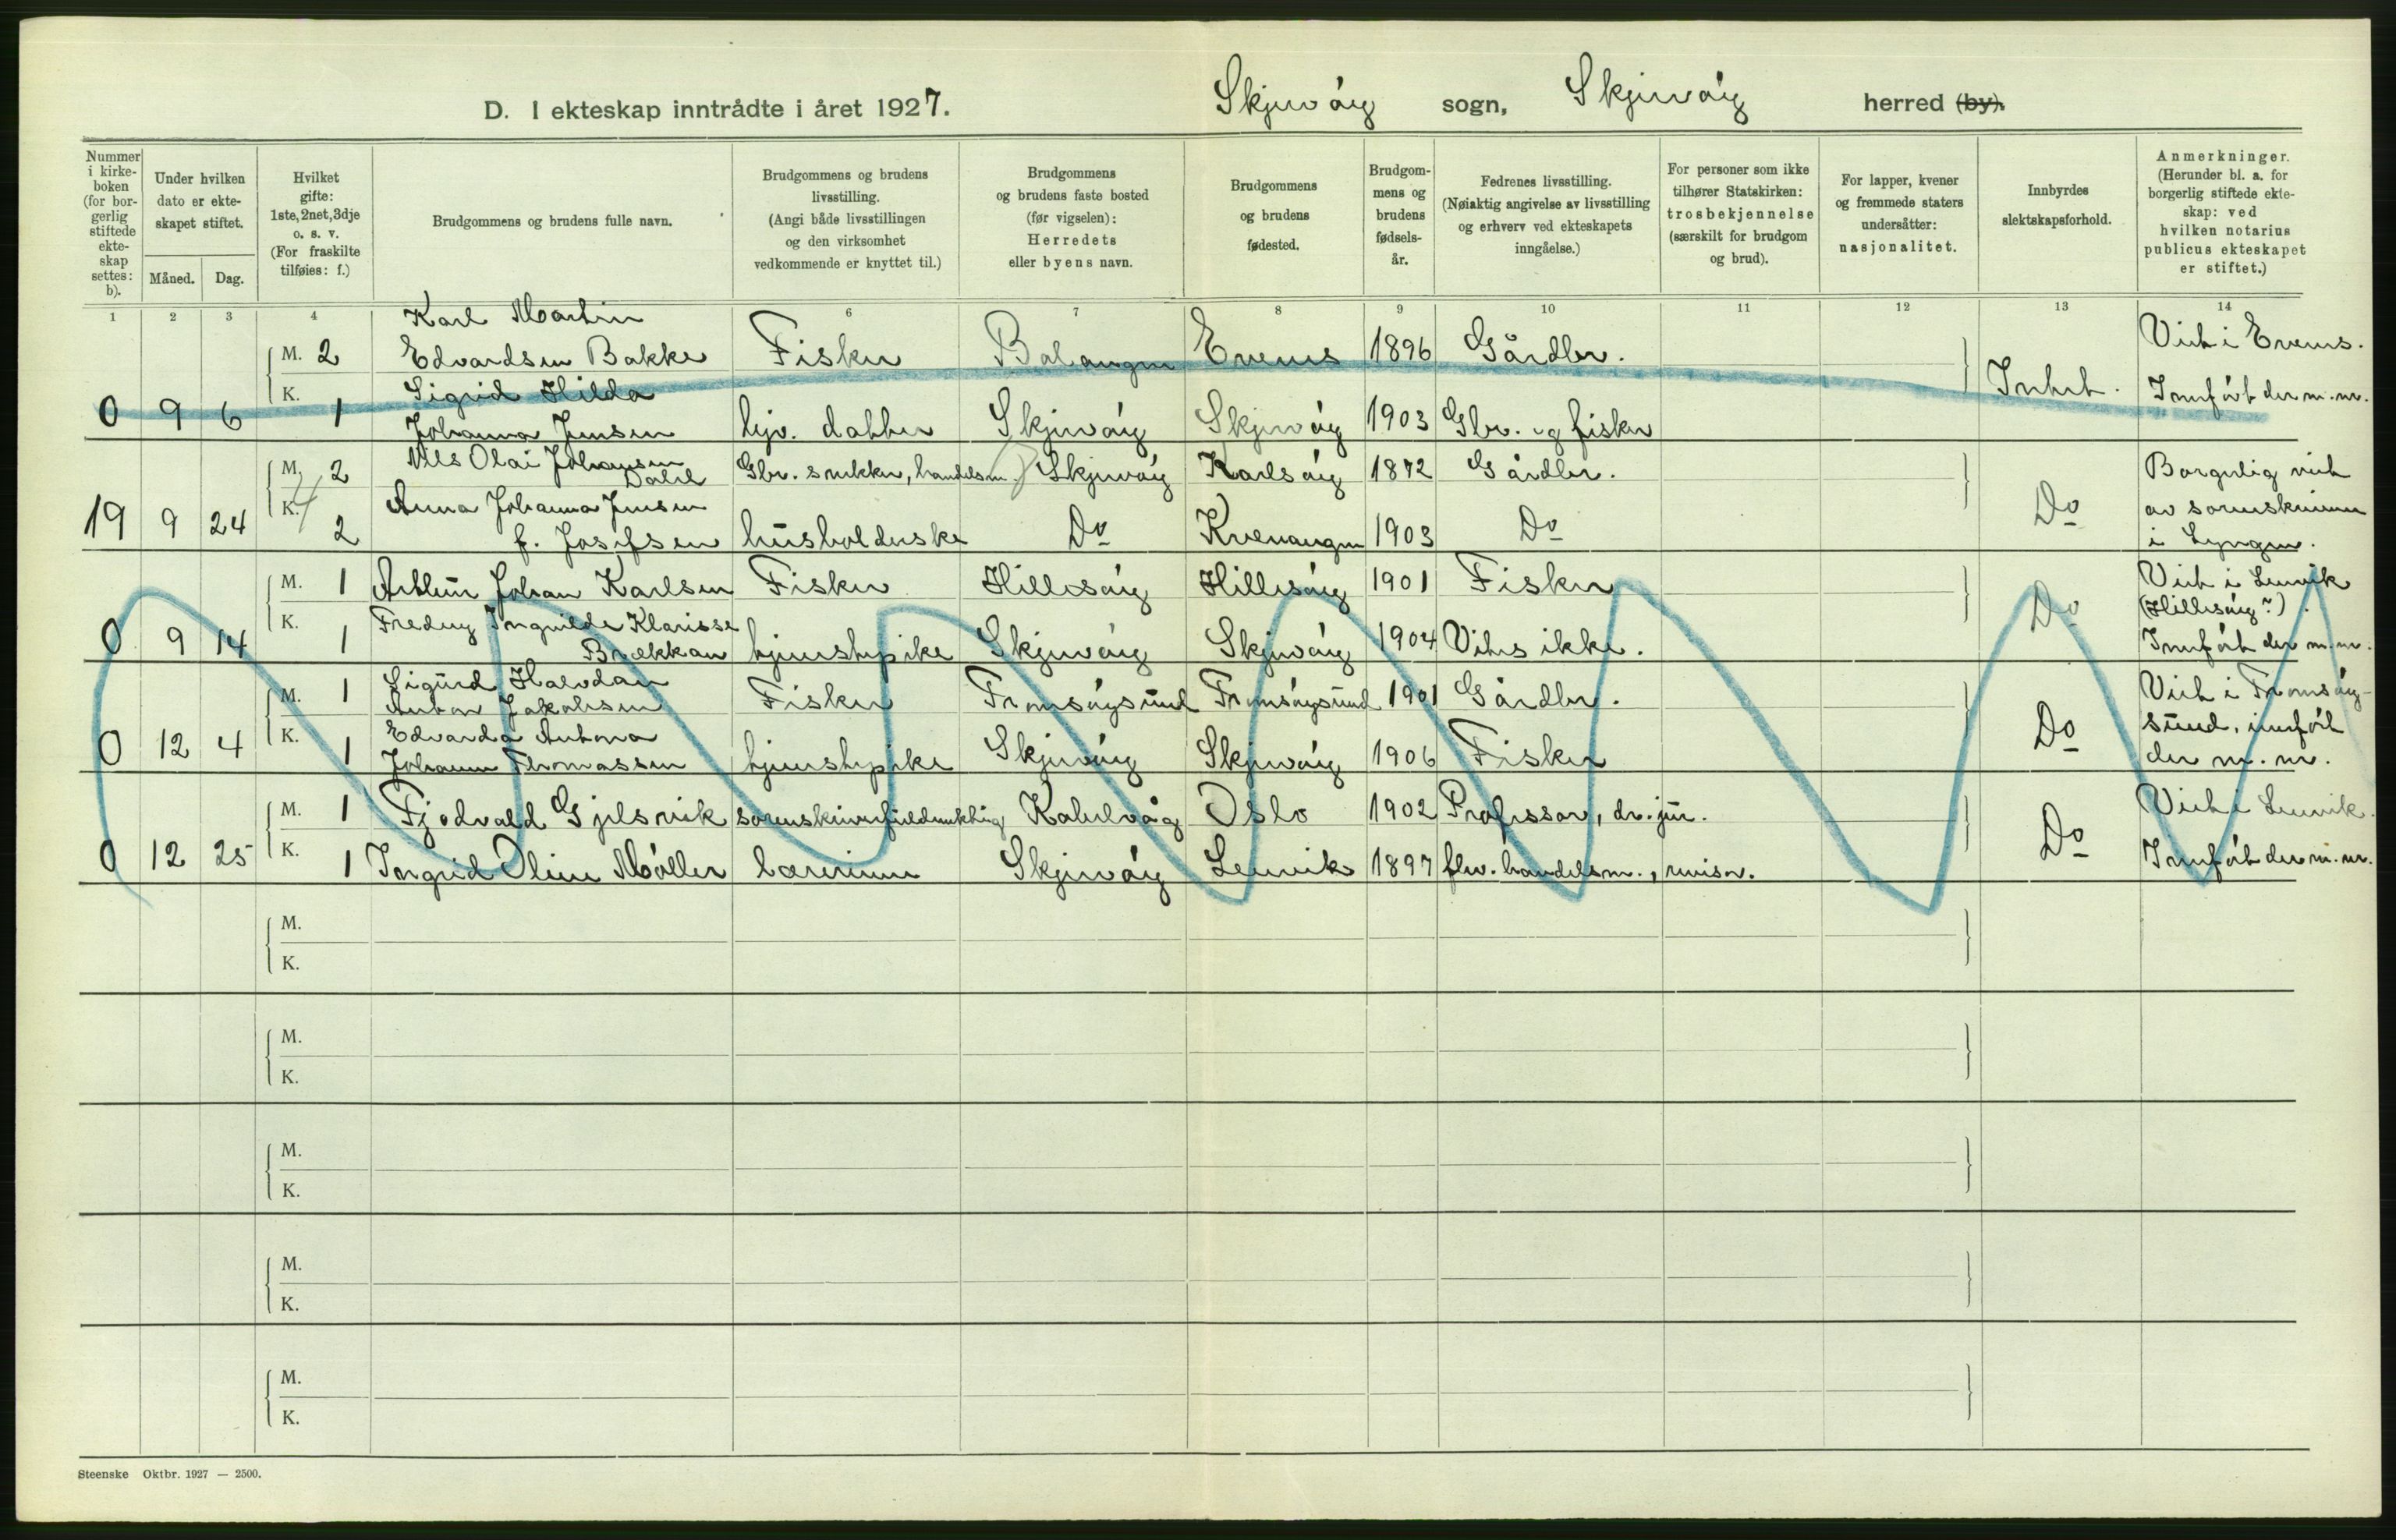 D. I ekteskap inntrådte i året 1927. Skjervöy sogn, Skjervöy herred (by).
Nummer i kirke-boken (for bor-gerlig stiftede ekte-skap settes: b).
Under hvilken dato er ekte-skapet stiftet.
Måned. Dag.
Hvilket gifte: 1ste, 2net, 3dje o. s. v. (For fraskilte tilføies: f.)
Brudgommens og brudens fulle navn.
Brudgommens og brudens livsstilling. (Angi både livsstillingen og den virksomhet vedkommende er knyttet til.)
Brudgommens og brudens faste bosted (før vigselen): Herredets eller byens navn.
Brudgommens og brudens fødested.
Brudgom-mens og brudens fødsels-år.
Fedrenes livsstilling. (Nøiaktig angivelse av livsstilling og erhverv ved ekteskapets inngåelse.)
For personer som ikke tilhører Statskirken: trosbekjennelse (særskilt for brudgom og brud).
For lapper, kvener og fremmede staters undersåtter: nasjonalitet.
Innbyrdes slektskapsforhold.
Anmerkninger. (Herunder bl. a. for borgerlig stiftede ekte-skap: ved hvilken notarius publicus ekteskapet er stiftet.)
1 2 3 4 6 7 8 9 10 11 12 13 14
Karl Martin
M. 2 Edvardsen Bakke Fisker Balangen Evenes 1896 Gårdbr. Viet i Evenes.
K. Sigrid Hilda Intet. Innfört der m. nr.
0 9 6 1 Johanna Jensen hjv. datter Skjervöy Skjervöy 1903 Gbr. og fisker
M. 2 Nils Olai Johansen Dahl Gbr. snekker, handelsm. Skjervöy Karlsöy 1872 Gårdbr. Borgerlig viet
K. Anna Johanna Jensen av sorenskriveren
19 9 24 2 f. Josefsen husholderske Do Kvenangen 1903 Do Do i Lyngen.
M. 1 Arthur Johan Karlsen Fisker Hillesöy Hillesöy 1901 Fisker Viet i Lenvik
K. Fredny Ingvilde Klarisse Do (Hillesöy?).
0 9 14 1 Brækkan tjenestepike Skjervöy Skjervöy 1904 Vites ikke. Innfört der m. nr.
M. 1 Sigurd Halvdan
Anton Jakobsen Fisker Tromsöysund Tromsöysund 1901 Gårdbr. Viet i Tromsöy-
K. Edvarda Antona Do sund, innfört
0 12 4 1 Johanne Thomassen tjenestepike Skjervöy Skjervöy 1906 Fisker der m. nr.
M. 1 Tjodvald Gjelsvik sorenskriverfullmektig Oslo 1902 Professor, dr. jur. Viet i Lenvik.
0 12 25 K. 1 Ingrid Oline Möller lærerinne Skjervöy Lenvik 1897 handelsm., revisor. Do Innfört der m. nr.
M.
K.
M.
K.
M.
K.
M.
K.
M.
K.
Steenske Oktbr. 1927 — 2500.